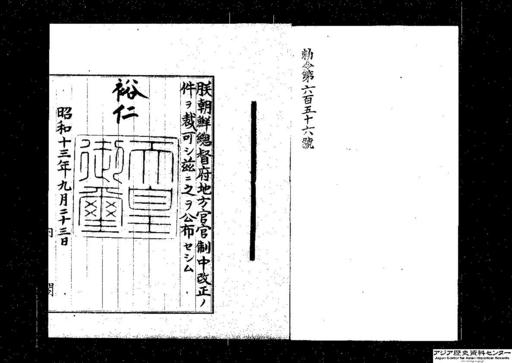 勅令第六百五十六號
朕朝鮮總督府地方官官制中改正ノ
件ヲ裁可シ茲ニ之ヲ公布セシム
裕仁
天皇
御璽
昭和十三年九月二十三日
内閣
アジア歴史資料センター
Japan Center for Asian Historical Records